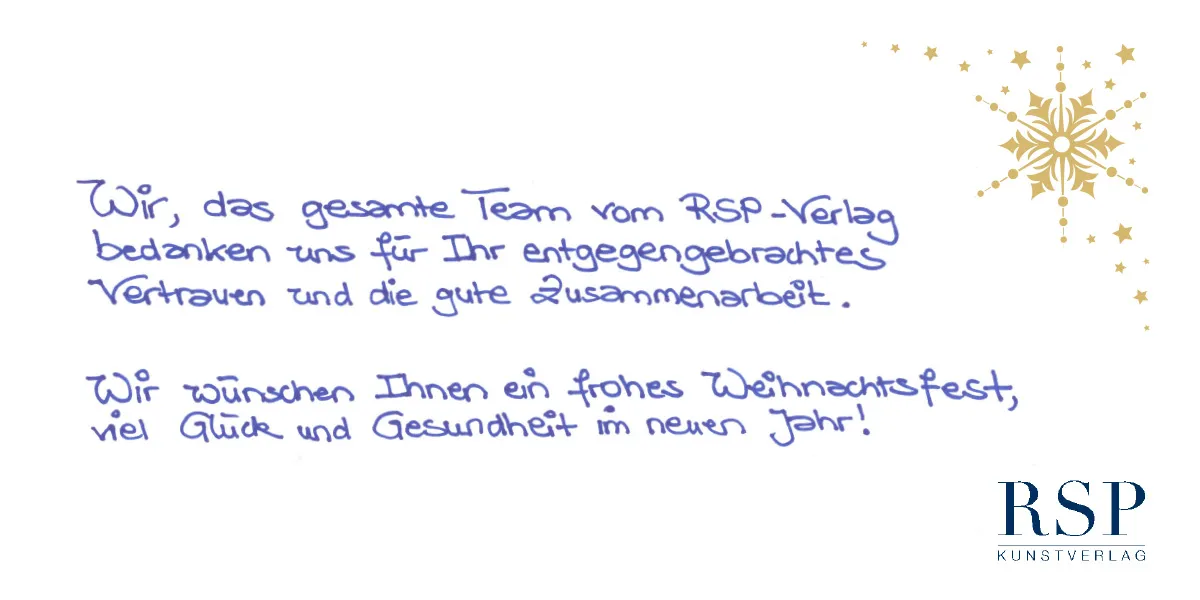 Wir, das gesamte Team vom RSP-Verlag
bedanken uns für Ihr entgegengebrachtes
Vertrauen und die gute Zusammenarbeit.
Wir wünschen Ihnen ein frohes Weihnachtsfest,
viel Glück und Gesundheit im neuen Jahr!
RSP
KUNSTVERLAG